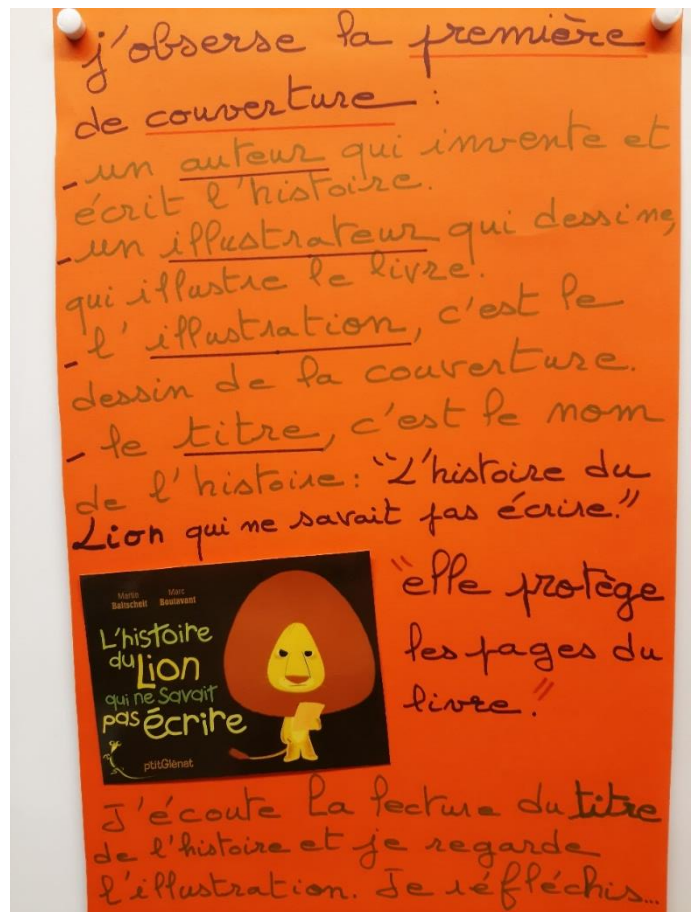 j'obserse la première
de couverture :
- un auteur qui invente et
écrit l'histoire.
- un illustrateur qui dessine,
qui illustre le livre.
- l'illustration, c'est le
dessin de la couverture.
- le titre, c'est le nom
de l'histoire : "L'histoire du
Lion qui ne savait pas écrire."
Martin Baltscheit
Marc Boutavant
L'histoire
du Lion
qui ne savait
pas écrire
ptitGlénat
"elle protège
les pages du
livre."
J'écoute la lecture du titre
de l'histoire et je regarde
l'illustration. Je réfléchis...